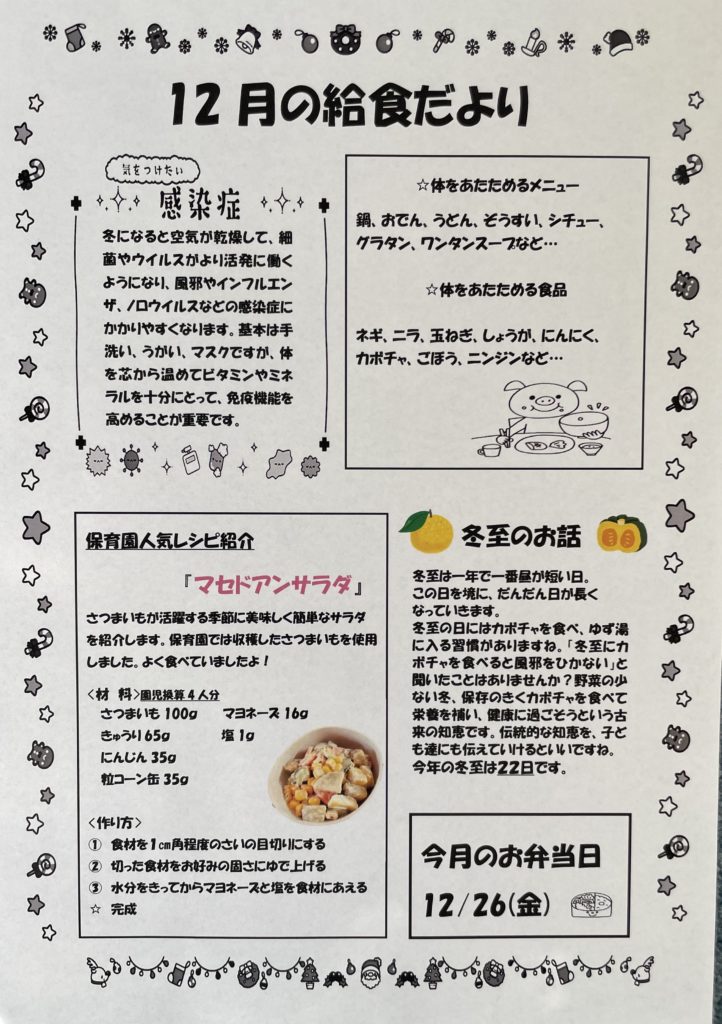 12月の給食だより
気をつけたい
感染症
冬になると空気が乾燥して、細
菌やウイルスがより活発に働く
ようになり、風邪やインフルエン
ザ、ノロウイルスなどの感染症に
かかりやすくなります。基本は手
洗い、うがい、マスクですが、体
を芯から温めてビタミンやミネ
ラルを十分にとって、免疫機能を
高めることが重要です。
☆体をあたためるメニュー
鍋、おでん、うどん、ぞうすい、シチュー、
グラタン、ワンタンスープなど…
☆体をあたためる食品
ネギ、ニラ、玉ねぎ、しょうが、にんにく、
カボチャ、ごぼう、ニンジンなど…
保育園人気レシピ紹介
『マセドアンサラダ』
さつまいもが活躍する季節に美味しく簡単なサラダ
を紹介します。保育園では収穫したさつまいもを使用
しました。よく食べていましたよ！
<材　料>園児換算4人分
さつまいも 100g　マヨネーズ 16g
きゅうり 65g　塩 1g
にんじん 35g
粒コーン缶 35g
<作り方>
① 食材を1㎝角程度のさいの目切りにする
② 切った食材をお好みの固さにゆで上げる
③ 水分をきってからマヨネーズと塩を食材にあえる
☆ 完成
冬至のお話
冬至は一年で一番昼が短い日。
この日を境に、だんだん日が長く
なっていきます。
冬至の日にはカボチャを食べ、ゆず湯
に入る習慣がありますね。「冬至にカ
ボチャを食べると風邪をひかない」と
聞いたことはありませんか？野菜の少
ない冬、保存のきくカボチャを食べて
栄養を補い、健康に過ごそうという古
来の知恵です。伝統的な知恵を、子ど
も達にも伝えていけるといいですね。
今年の冬至は22日です。
今月のお弁当日
12/26(金)